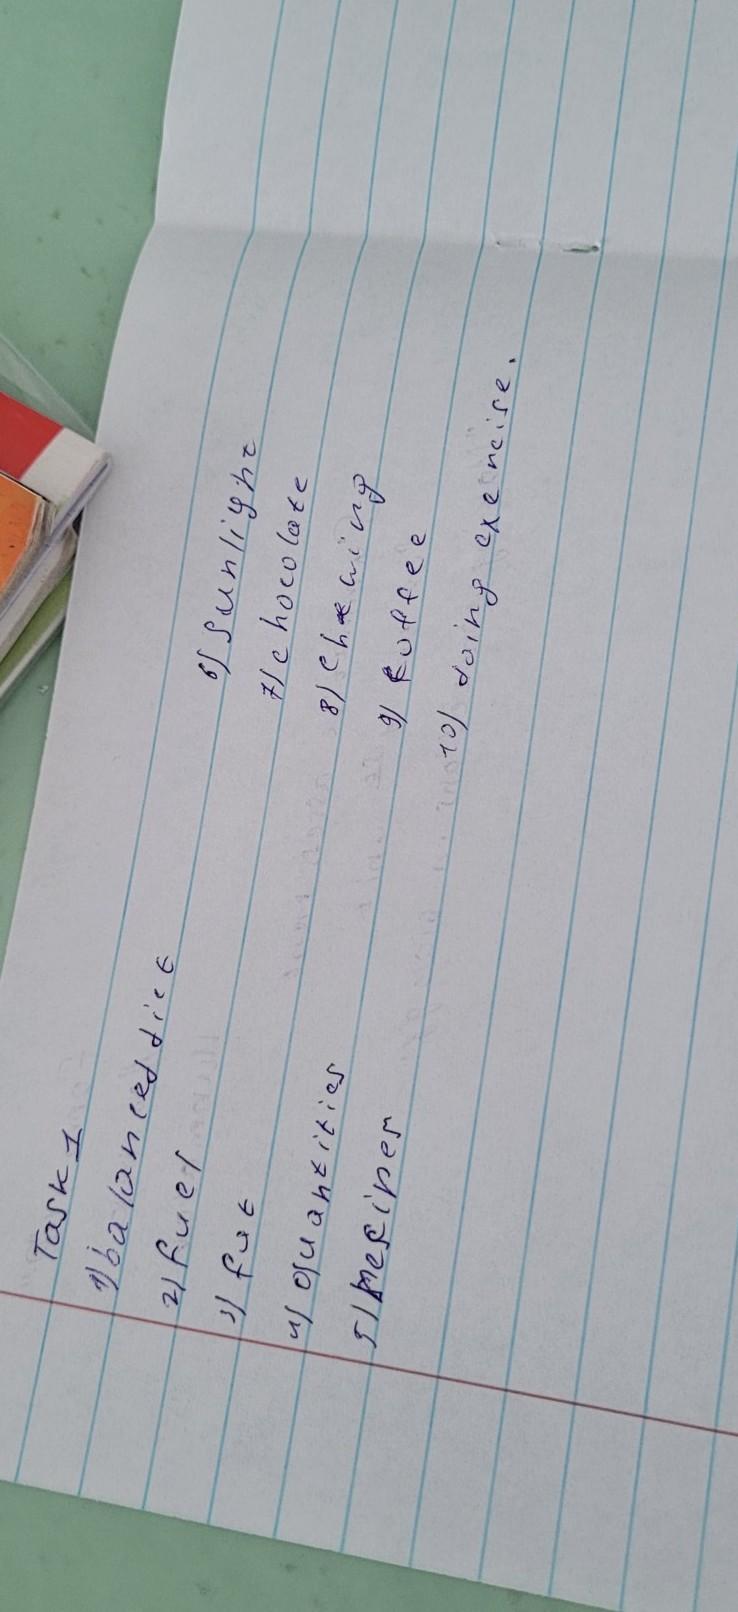 Task 1
1) balanced diet
2) fuel
3) fat
4) quantities
5) recipes
6) sunlight
7) chocolate
8) chewing
9) coffee
10) doing exercise.